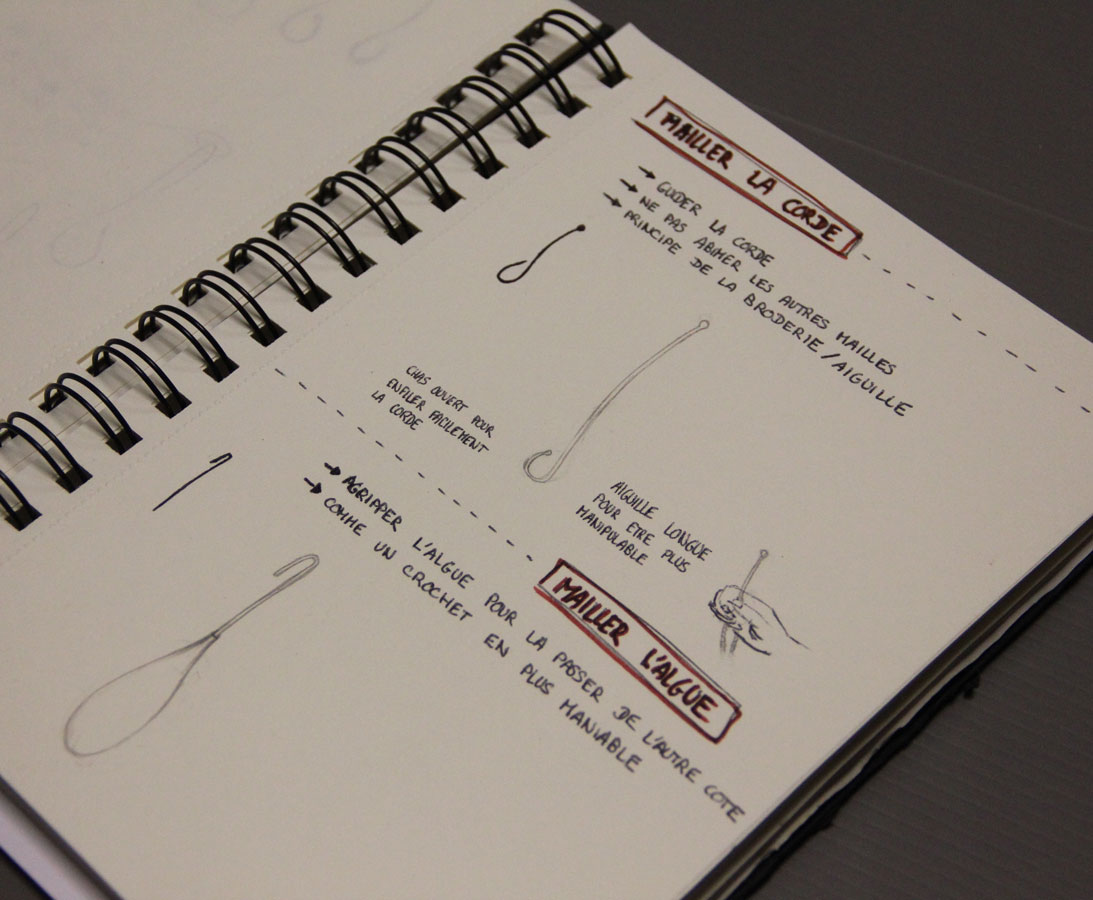 MAILLER LA CORDE
→ GUIDER LA CORDE
→ NE PAS ABIMER LES AUTRES MAILLES
→ PRINCIPE DE LA BRODERIE/AIGUILLE
CHAS OUVERT POUR
ENFILER FACILEMENT
LA CORDE
AIGUILLE LONGUE
POUR ETRE PLUS
MANIPULABLE
MAILLER L'ALGUE
→ AGRIPPER L'ALGUE POUR LA PASSER DE L'AUTRE COTE
→ COMME UN CROCHET EN PLUS MANIABLE